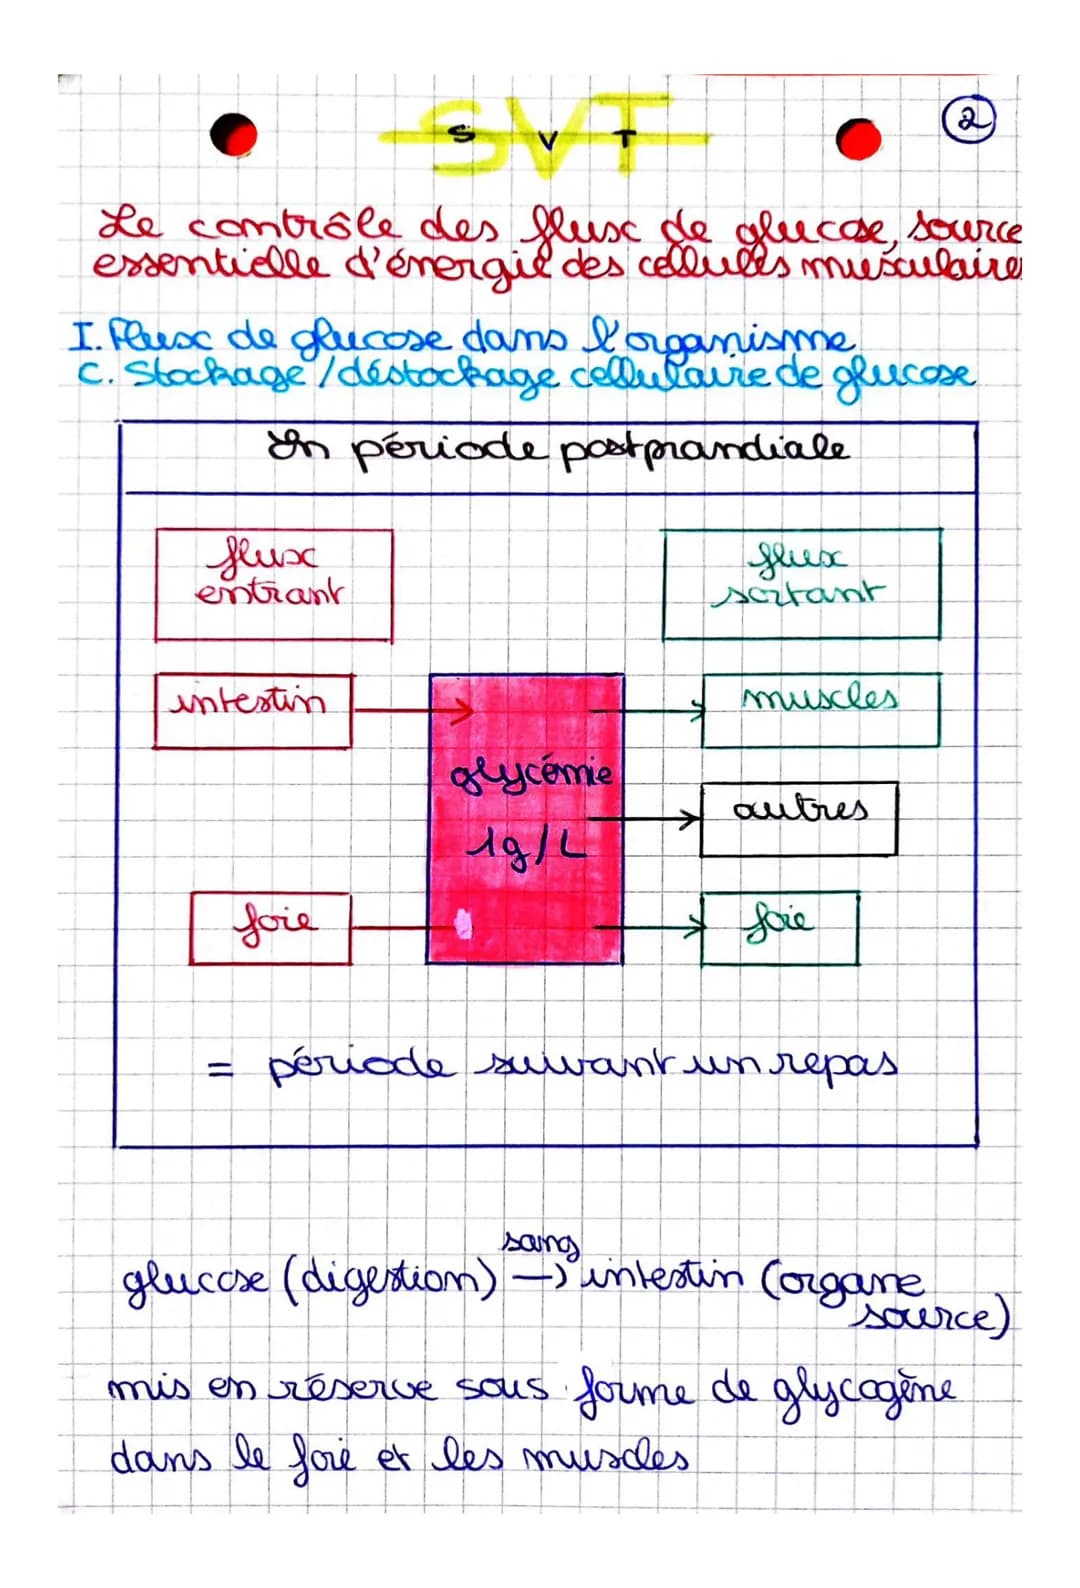 SVT
S V T
2
Le contrôle des flux de glucose, source
essentielle d'énergie des cellules musculaires
I. Flux de glucose dans l'organisme
C. Stockage / déstockage cellulaire de glucose
En période postprandiale
flux
entrant
flux
sortant
intestin
muscles
glycémie
1g/L
autres
foie
foie
= période suivant un repas
sang
glucose (digestion) → intestin (organe
source)
mis en réserve sous forme de glycogène
dans le foie et les muscles